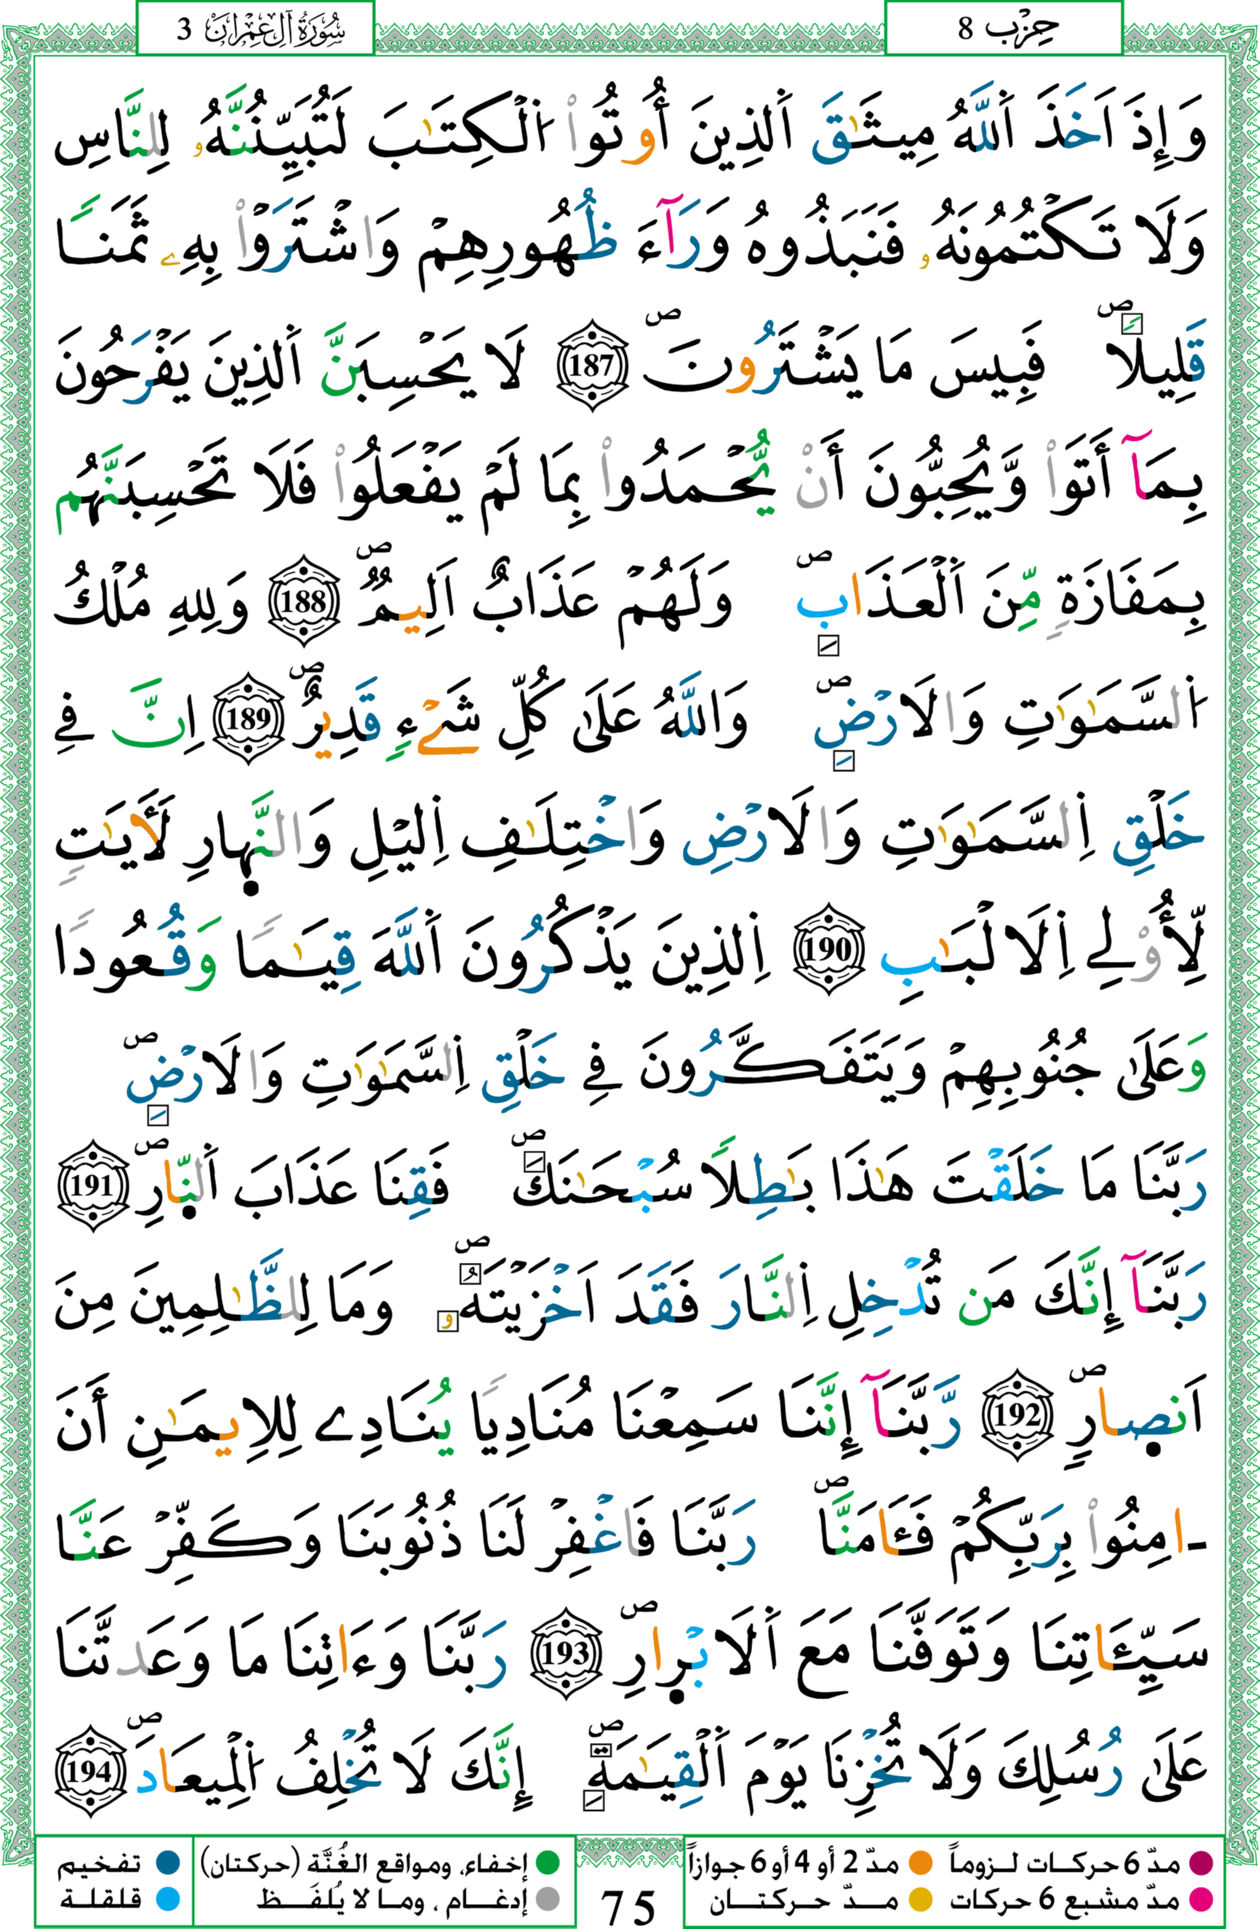 سُورَةُ آلِ عِمْرَانَ 3
حِزْب 8
وَإِذَ اَخَذَ اَ۬للَّهُ مِيثَٰقَ اَ۬لذِينَ أُوتُواْ اُ۬لْكِتَٰبَ لَتُبَيِّنُنَّهُۥ لِلنَّاسِ
وَلَا تَكْتُمُونَهُۥ فَنَبَذُوهُ وَرَآءَ ظُهُورِهِمْ وَاشْتَرَوْاْ بِهِۦ ثَمَناٗ
قَلِيلاٗۖ فَبِيسَ مَا يَشْتَرُونَۖ 187 لَا يَحْسِبَنَّ اَ۬لذِينَ يَفْرَحُونَ
بِمَآ أَتَواْ وَّيُحِبُّونَ أَنْ يُّحْمَدُواْ بِمَا لَمْ يَفْعَلُواْ فَلَا تَحْسِبَنَّهُم
بِمَفَازَةٖ مِّنَ اَ۬لْعَذَابِۖ وَلَهُمْ عَذَابٌ اَلِيمٞۖ 188 وَلِلهِ مُلْكُ
اُ۬لسَّمَٰوَٰتِ وَالَارْضِۖ وَاللَّهُ عَلَىٰ كُلِّ شَےْءٖ قَدِيرٌۖ 189 اِنَّ فِے
خَلْقِ اِ۬لسَّمَٰوَٰتِ وَالَارْضِ وَاخْتِلَٰفِ اِ۬ليْلِ وَالنَّهارِ لَأٓيَٰتٖ
لِّأُوْلِے اِ۬لَالْبَٰبِ 190 اِ۬لذِينَ يَذْكُرُونَ اَ۬للَّهَ قِيَٰماٗ وَقُعُوداٗ
وَعَلَىٰ جُنُوبِهِمْ وَيَتَفَكَّرُونَ فِے خَلْقِ اِ۬لسَّمَٰوَٰتِ وَالَارْضِۖ
رَبَّنَا مَا خَلَقْتَ هَٰذَا بَٰطِلاٗ سُبْحَٰنَكَۖ فَقِنَا عَذَابَ اَ۬لنّارِۖ 191
رَبَّنَآ إِنَّكَ مَن تُدْخِلِ اِ۬لنَّارَ فَقَدَ اَخْزَيْتَهُۥۖ وَمَا لِلظَّٰلِمِينَ مِنَ
اَنصارٖۖ 192 رَّبَّنَآ إِنَّنَا سَمِعْنَا مُنَادِياٗ يُنَادِے لِلِايمَٰنِ أَنَ
اٰمِنُواْ بِرَبِّكُمْ فَـَٔامَنَّاۖ رَبَّنَا فَاغْفِرْ لَنَا ذُنُوبَنَا وَكَفِّرْ عَنَّا
سَيِّـَٔاتِنَا وَتَوَفَّنَا مَعَ اَ۬لَابْرارِۖ 193 رَبَّنَا وَءَاتِنَا مَا وَعَدتَّنَا
عَلَىٰ رُسُلِكَ وَلَا تُخْزِنَا يَوْمَ اَ۬لْقِيَٰمَةِۖ إِنَّكَ لَا تُخْلِفُ اُ۬لْمِيعَادَۖ 194
مدّ 6 حركات لـزوماً مدّ 2 أو 4 أو 6 جوازاً
مدّ مشبع 6 حركات مدّ حركتان
75
إخفاء، ومواقع الغُنَّة (حركتان) تفخيم
إدغام ، وما لا يُلفَظ قلقلة